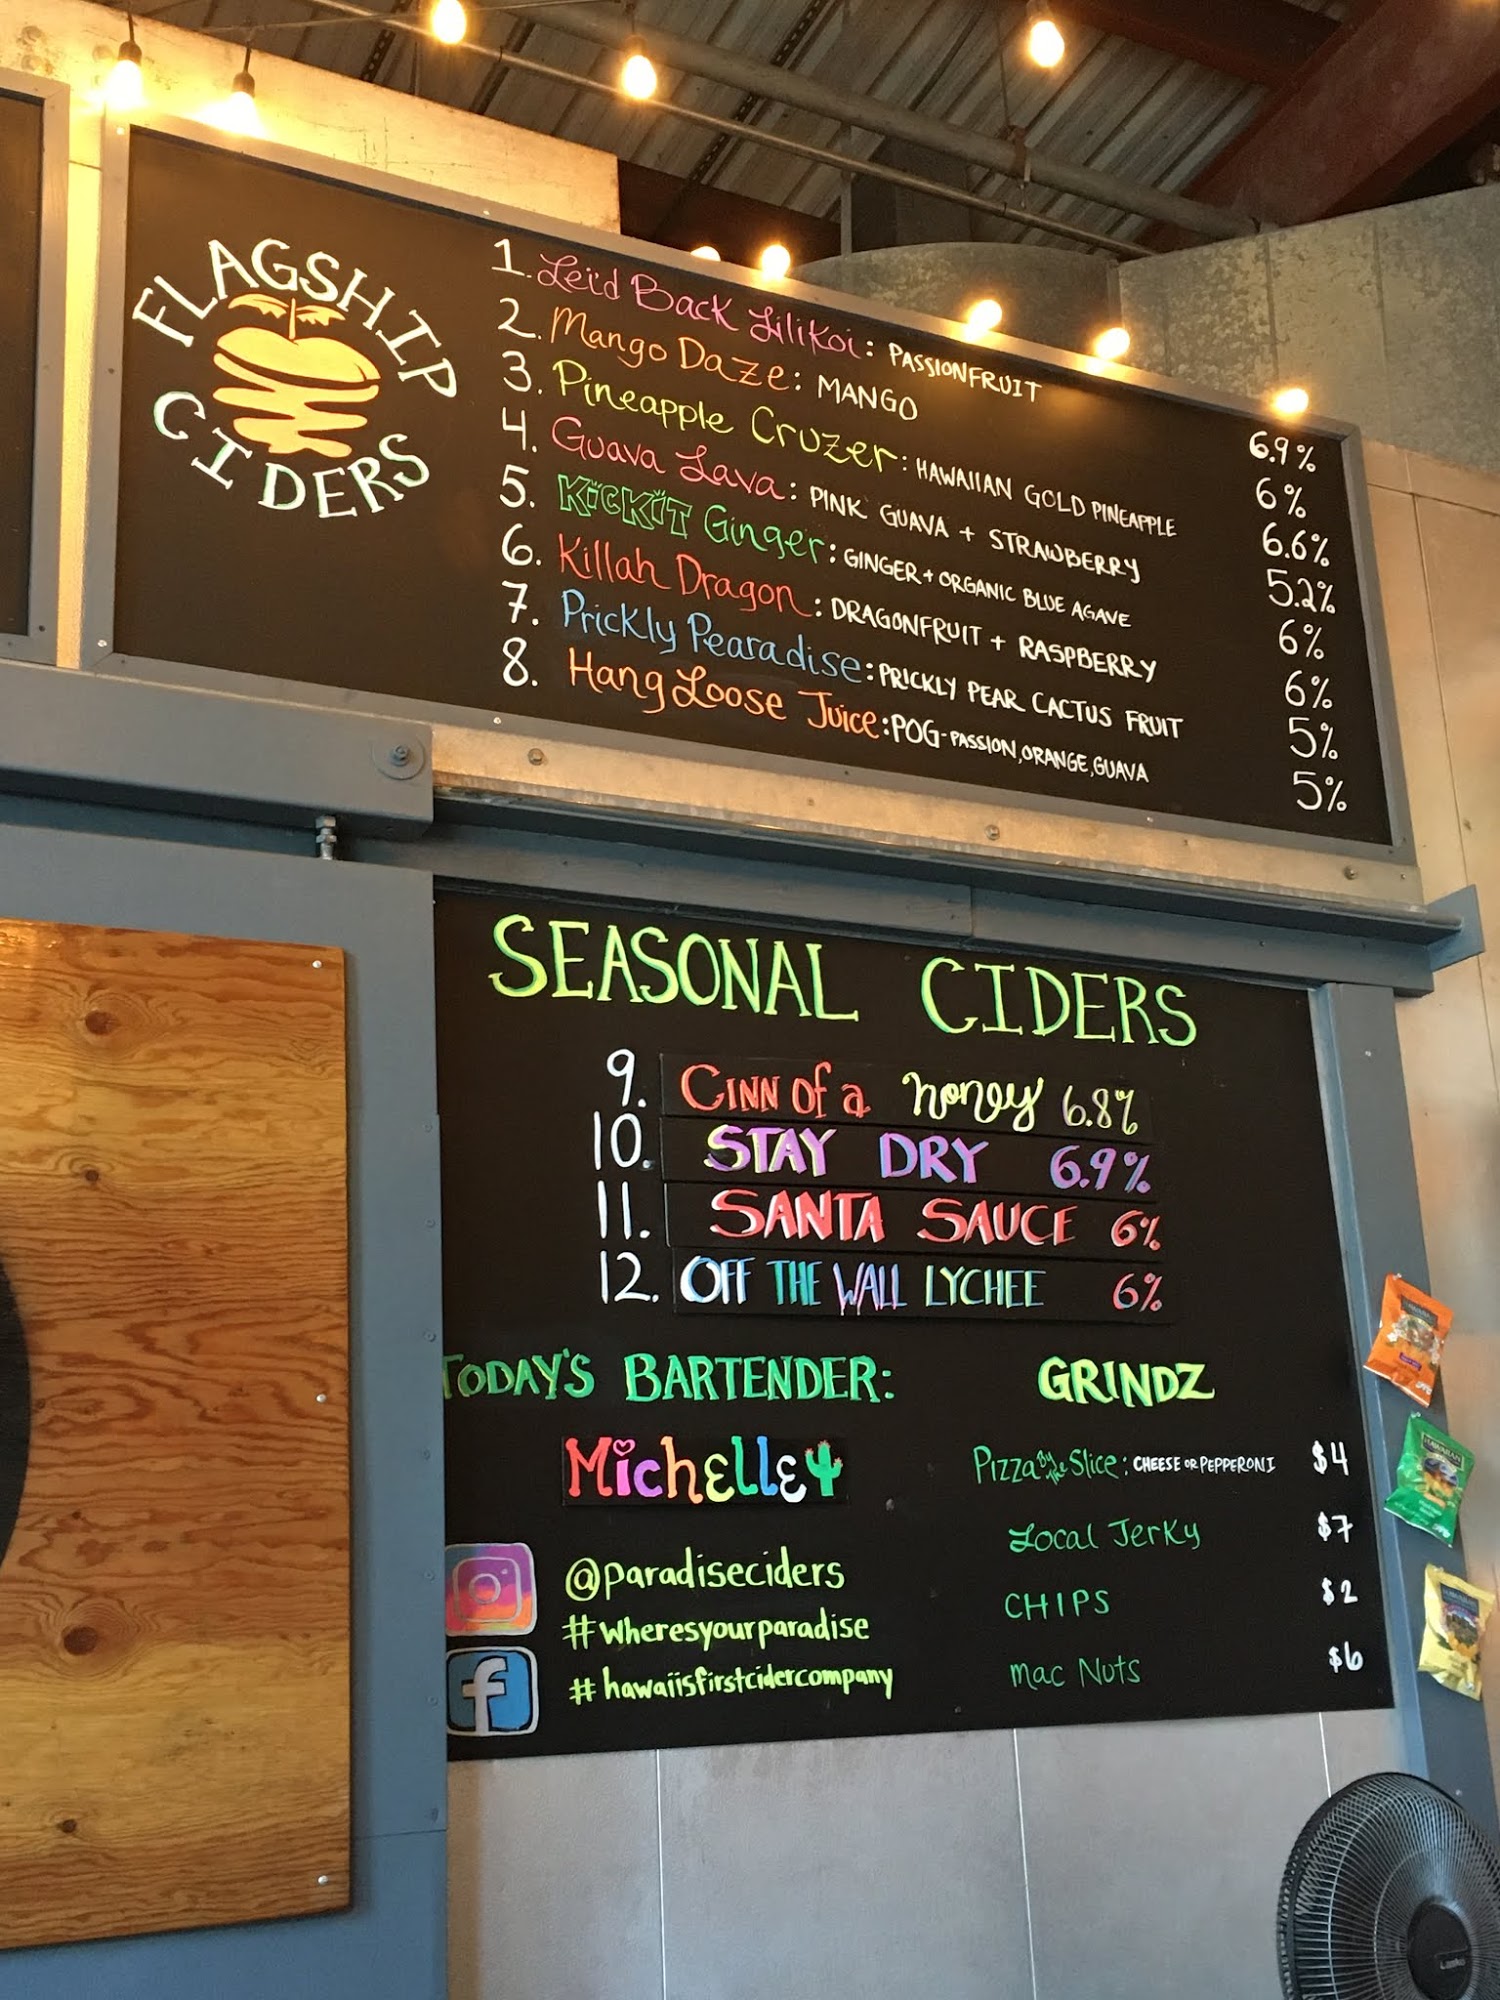 FLAGSHIP
CIDERS
1. Leid Back Lilikoi: PASSIONFRUIT 6.9%
2. Mango Daze: MANGO 6%
3. Pineapple Cruzer: HAWAIIAN GOLD PINEAPPLE 6.6%
4. Guava Lava: PINK GUAVA + STRAWBERRY 5.2%
5. KiCKiT Ginger: GINGER + ORGANIC BLUE AGAVE 6%
6. Killah Dragon: DRAGONFRUIT + RASPBERRY 6%
7. Prickly Pearadise: PRICKLY PEAR CACTUS FRUIT 5%
8. Hang Loose Juice: POG-PASSION, ORANGE, GUAVA 5%
SEASONAL CIDERS
9. CINN Of a honey 6.8%
10. STAY DRY 6.9%
11. SANTA SAUCE 6%
12. OFF THE WALL LYCHEE 6%
TODAY'S BARTENDER:
Michelle
@paradiseciders
#wheresyourparadise
#hawaiisfirstcidercompany
GRINDZ
Pizza By The Slice: CHEESE OR PEPPERONI $4
Local Jerky $7
CHIPS $2
Mac Nuts $6
Lasko